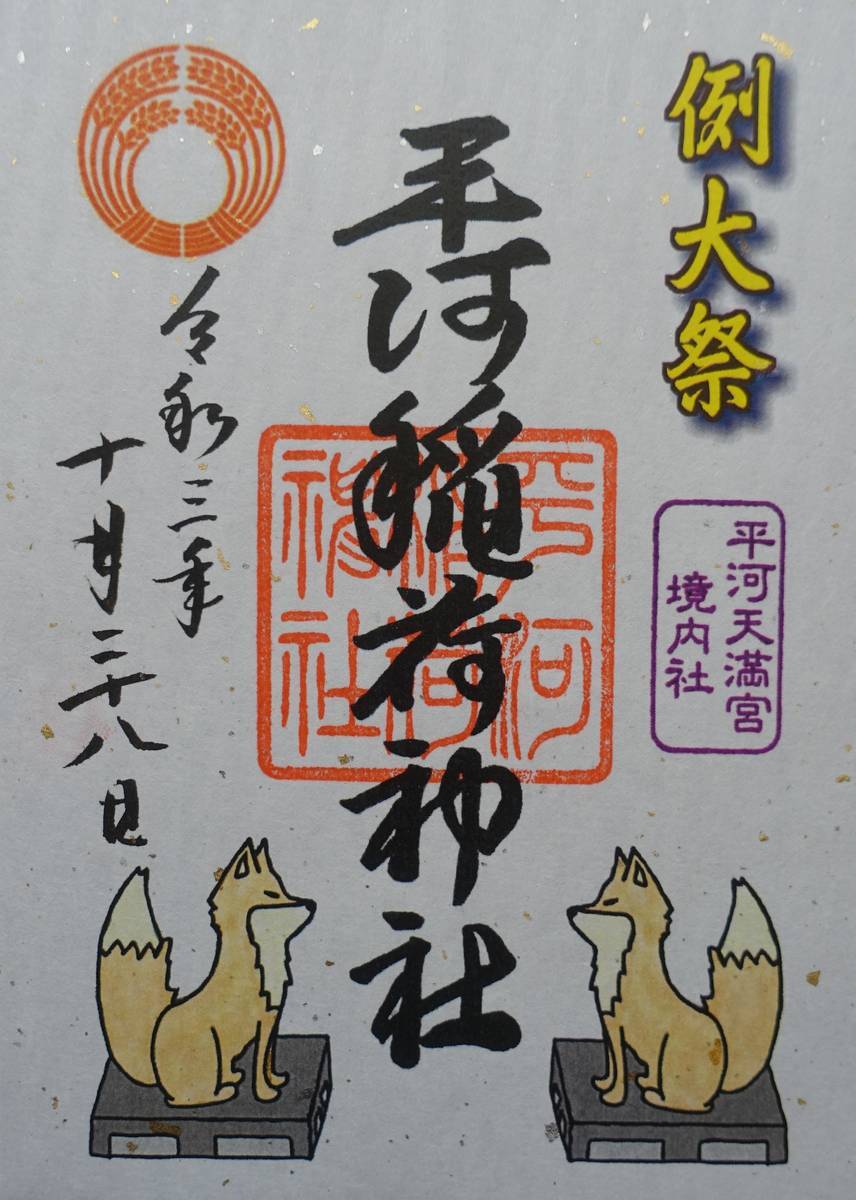 例大祭
平河天満宮
境内社
平河稲荷神社
平河
稲荷
神社
令和三年
十月二十八日